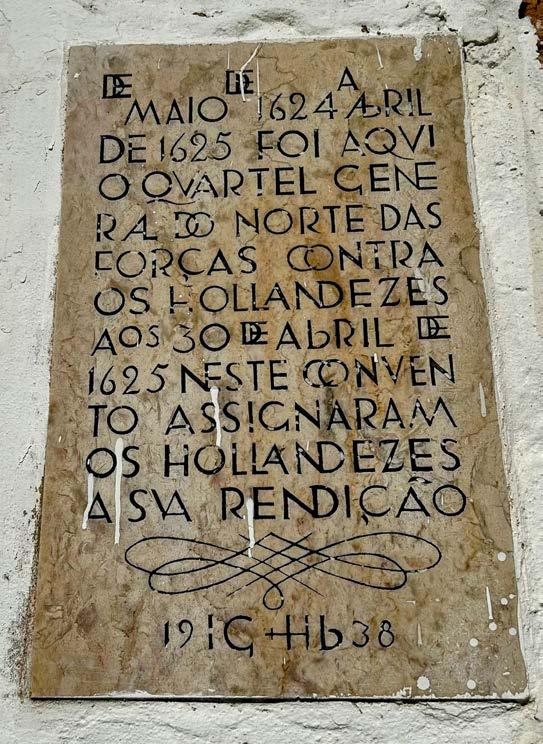 DE MAIO DE 1624 A ABRIL
DE 1625 FOI AQVI
O QVARTEL GENE
RAL DO NORTE DAS
FORÇAS CONTRA
OS HOLLANDEZES
AOS 30 DE ABRIL DE
1625 NESTE CONVEN
TO ASSIGNARAM
OS HOLLANDEZES
A SVA RENDIÇÃO
19 IG HB 38